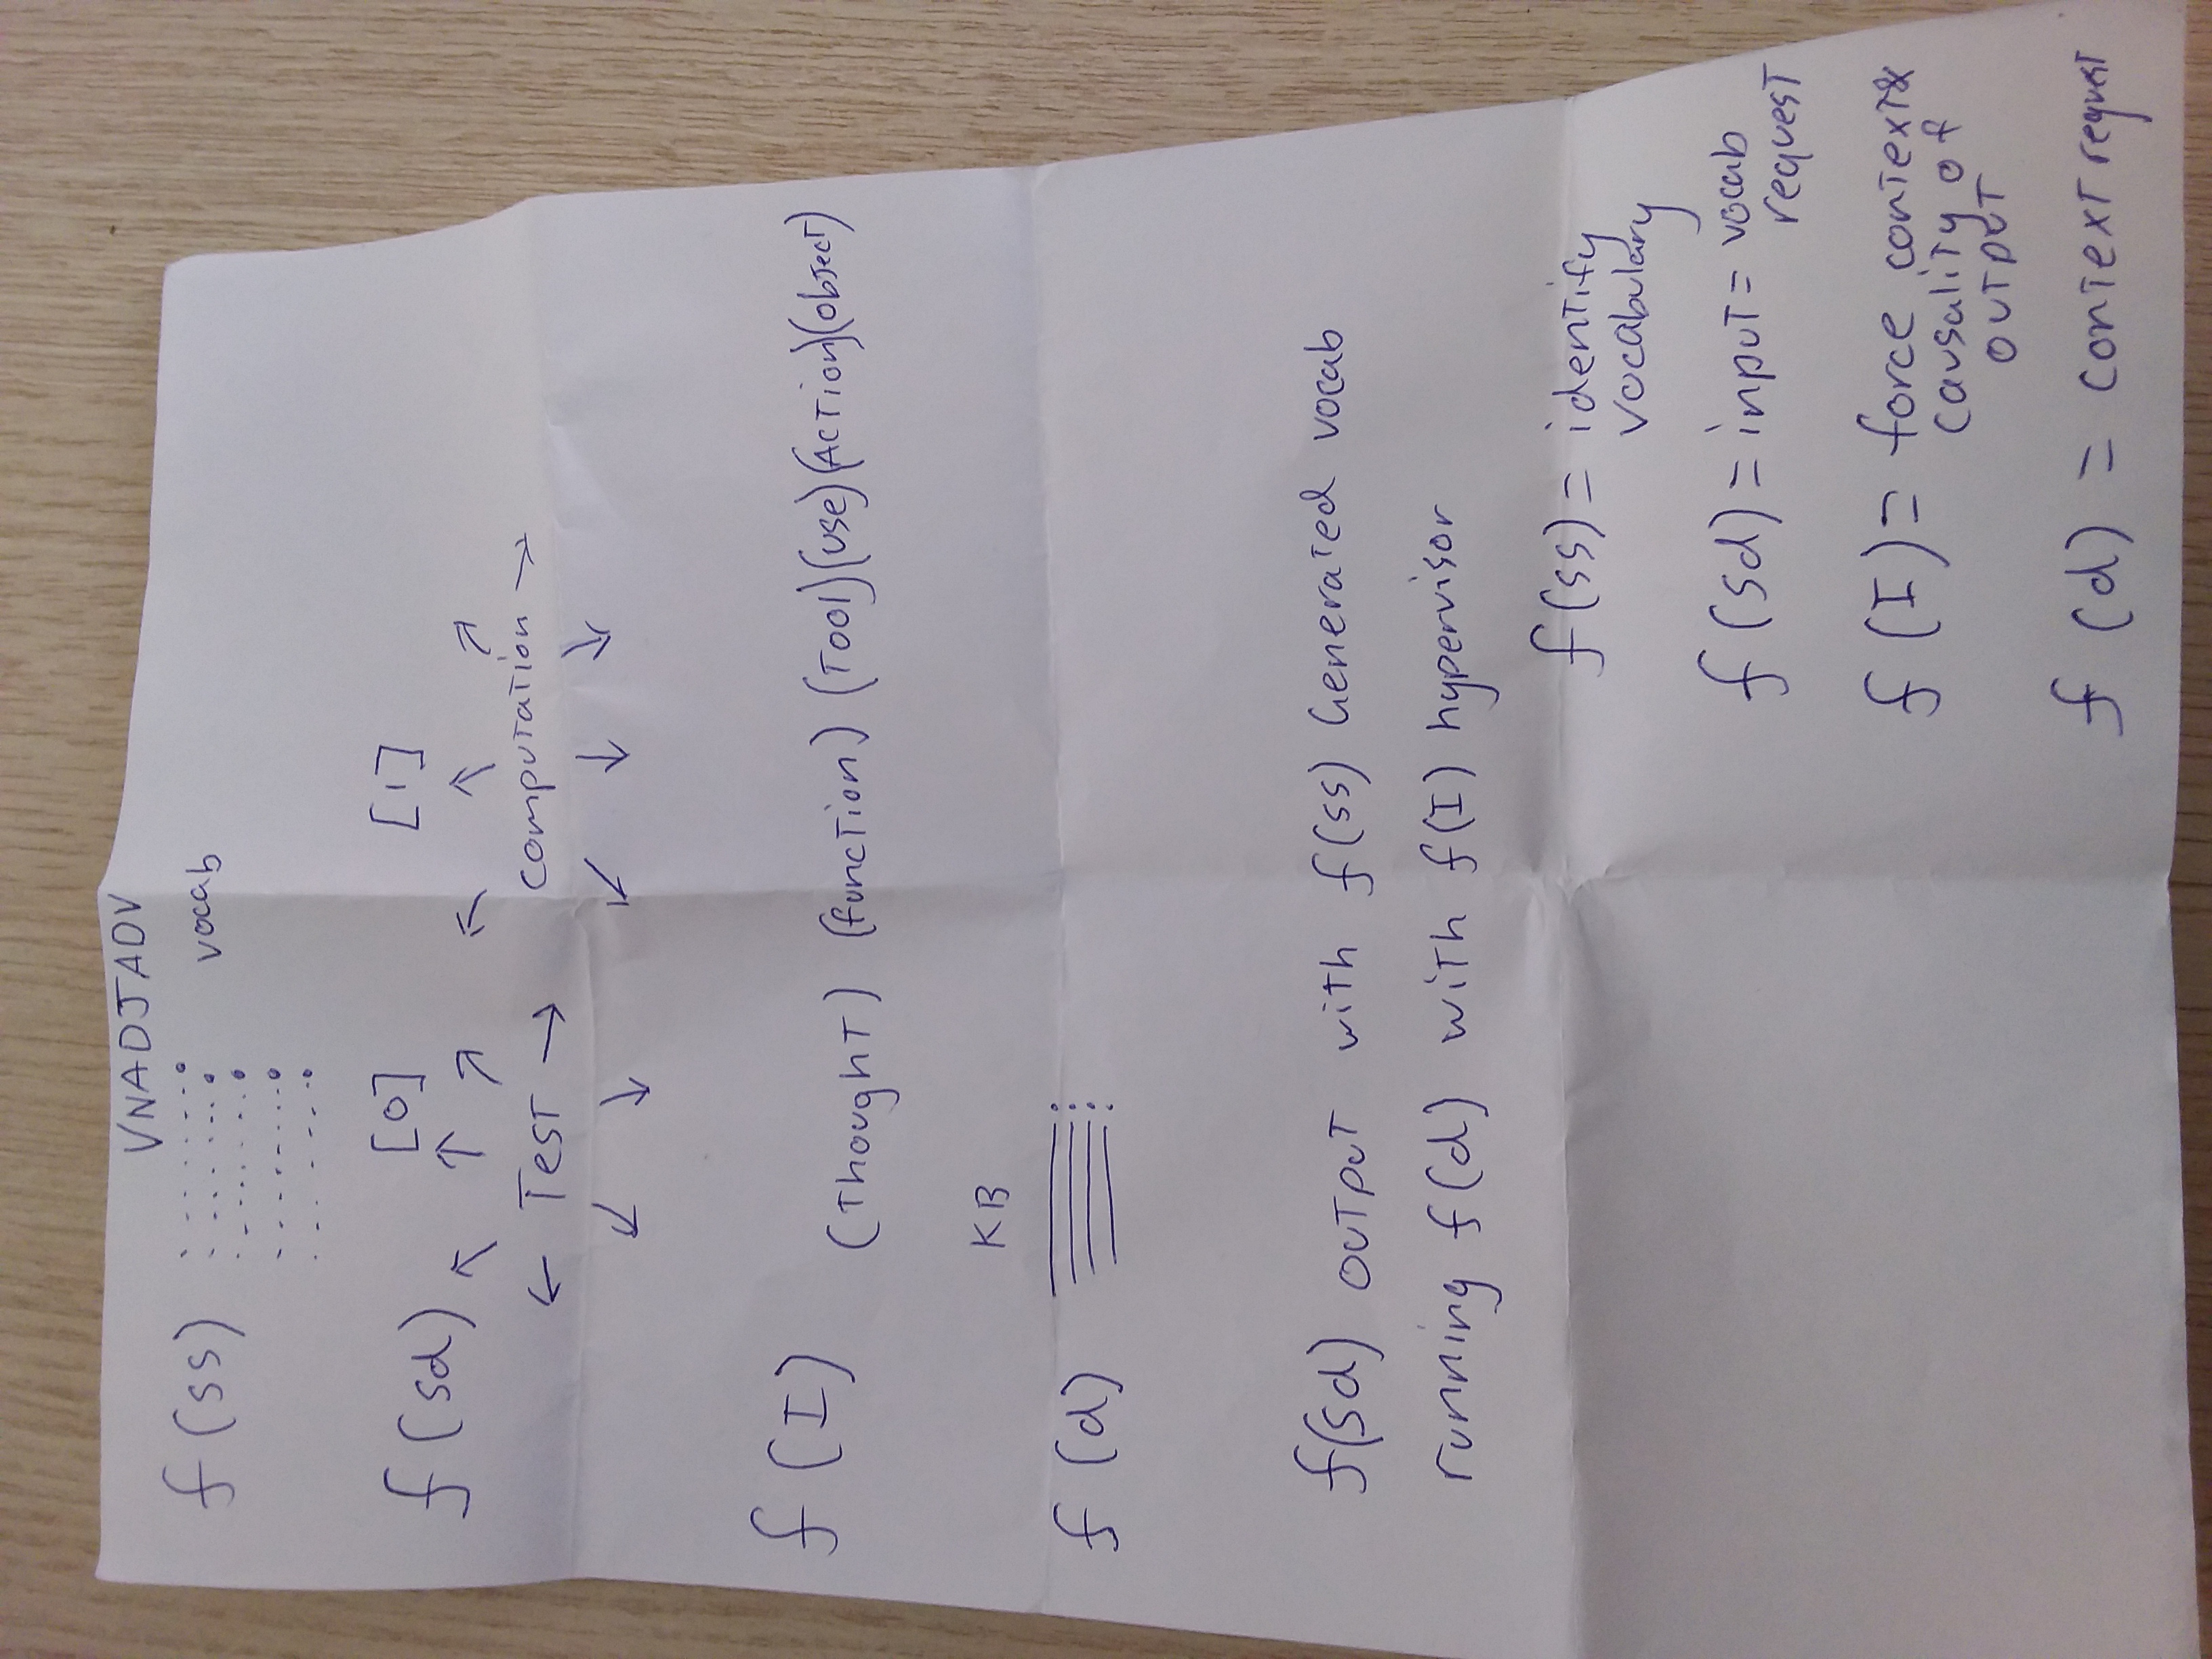 VNADJADV
f(ss) vocab
f(sd) [0] [1]
Test computation
f(I) (Thought) (function) (Tool)(use)(Action)(object)
KB
f(d)
f(sd) output with f(ss) Generated vocab
running f(d) with f(I) hypervisor
f(ss) = identify
vocabulary
f(sd) = input = vocab
request
f(I) = force context &
causality of
output
f(d) = context request